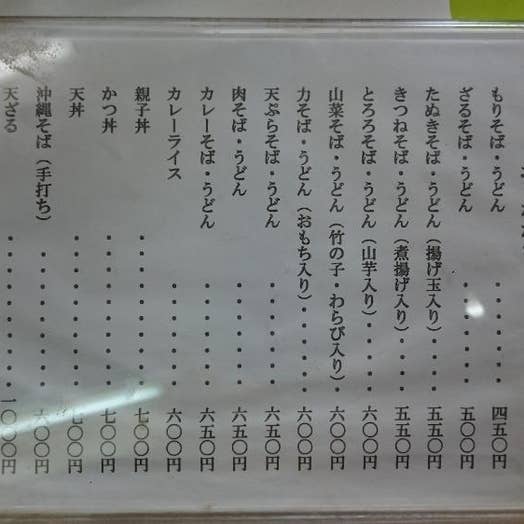 もりそば・うどん・・・・・・四五〇円
ざるそば・うどん・・・・・・五〇〇円
たぬきそば・うどん（揚げ玉入り）・・・五五〇円
きつねそば・うどん（煮揚げ入り）・・・五五〇円
とろろそば・うどん（山芋入り）・・・・六〇〇円
山菜そば・うどん（竹の子・わらび入り）・六〇〇円
力そば・うどん（おもち入り）・・・・六〇〇円
天ぷらそば・うどん・・・・・六五〇円
肉そば・うどん・・・・・六五〇円
カレーそば・うどん・・・・・六五〇円
カレーライス・・・・・六〇〇円
親子丼・・・・・・・七〇〇円
かつ丼・・・・・・・七〇〇円
天丼・・・・・・・七〇〇円
沖縄そば（手打ち）・・・・・・・六〇〇円
天ざる・・・・・・・一〇〇〇円